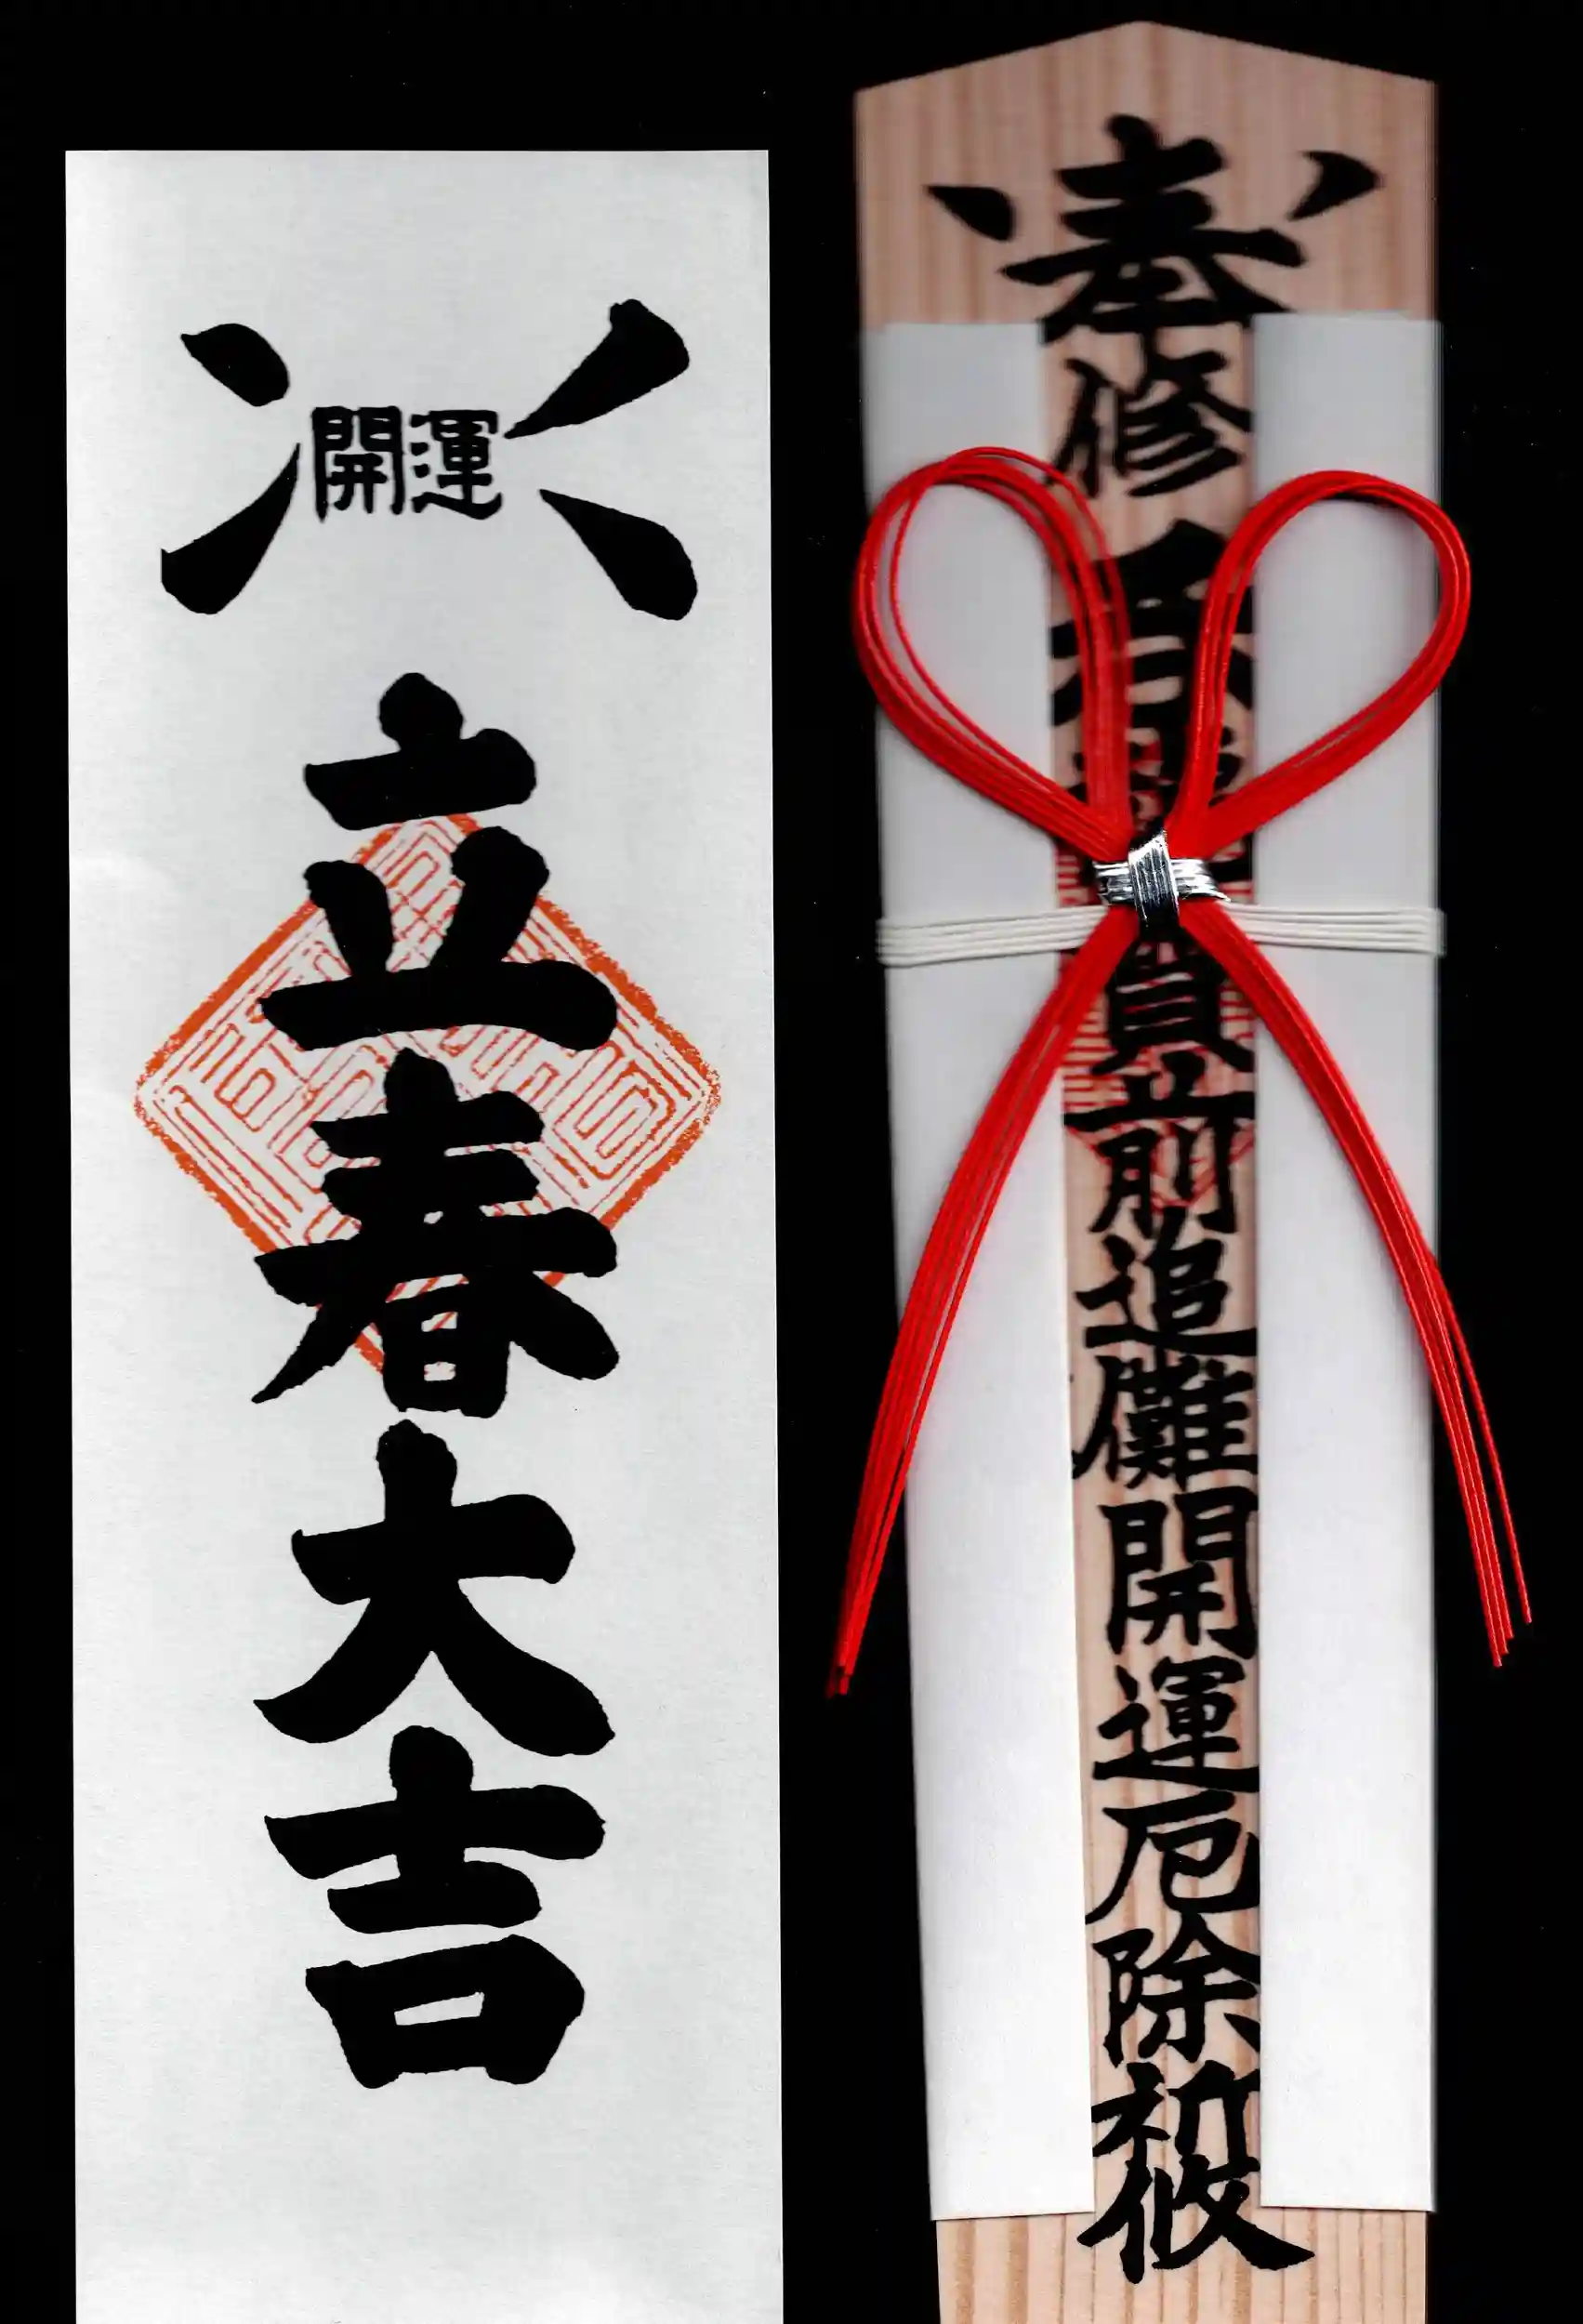 開運
立春大吉
奉修前追儺開運厄除祈攸